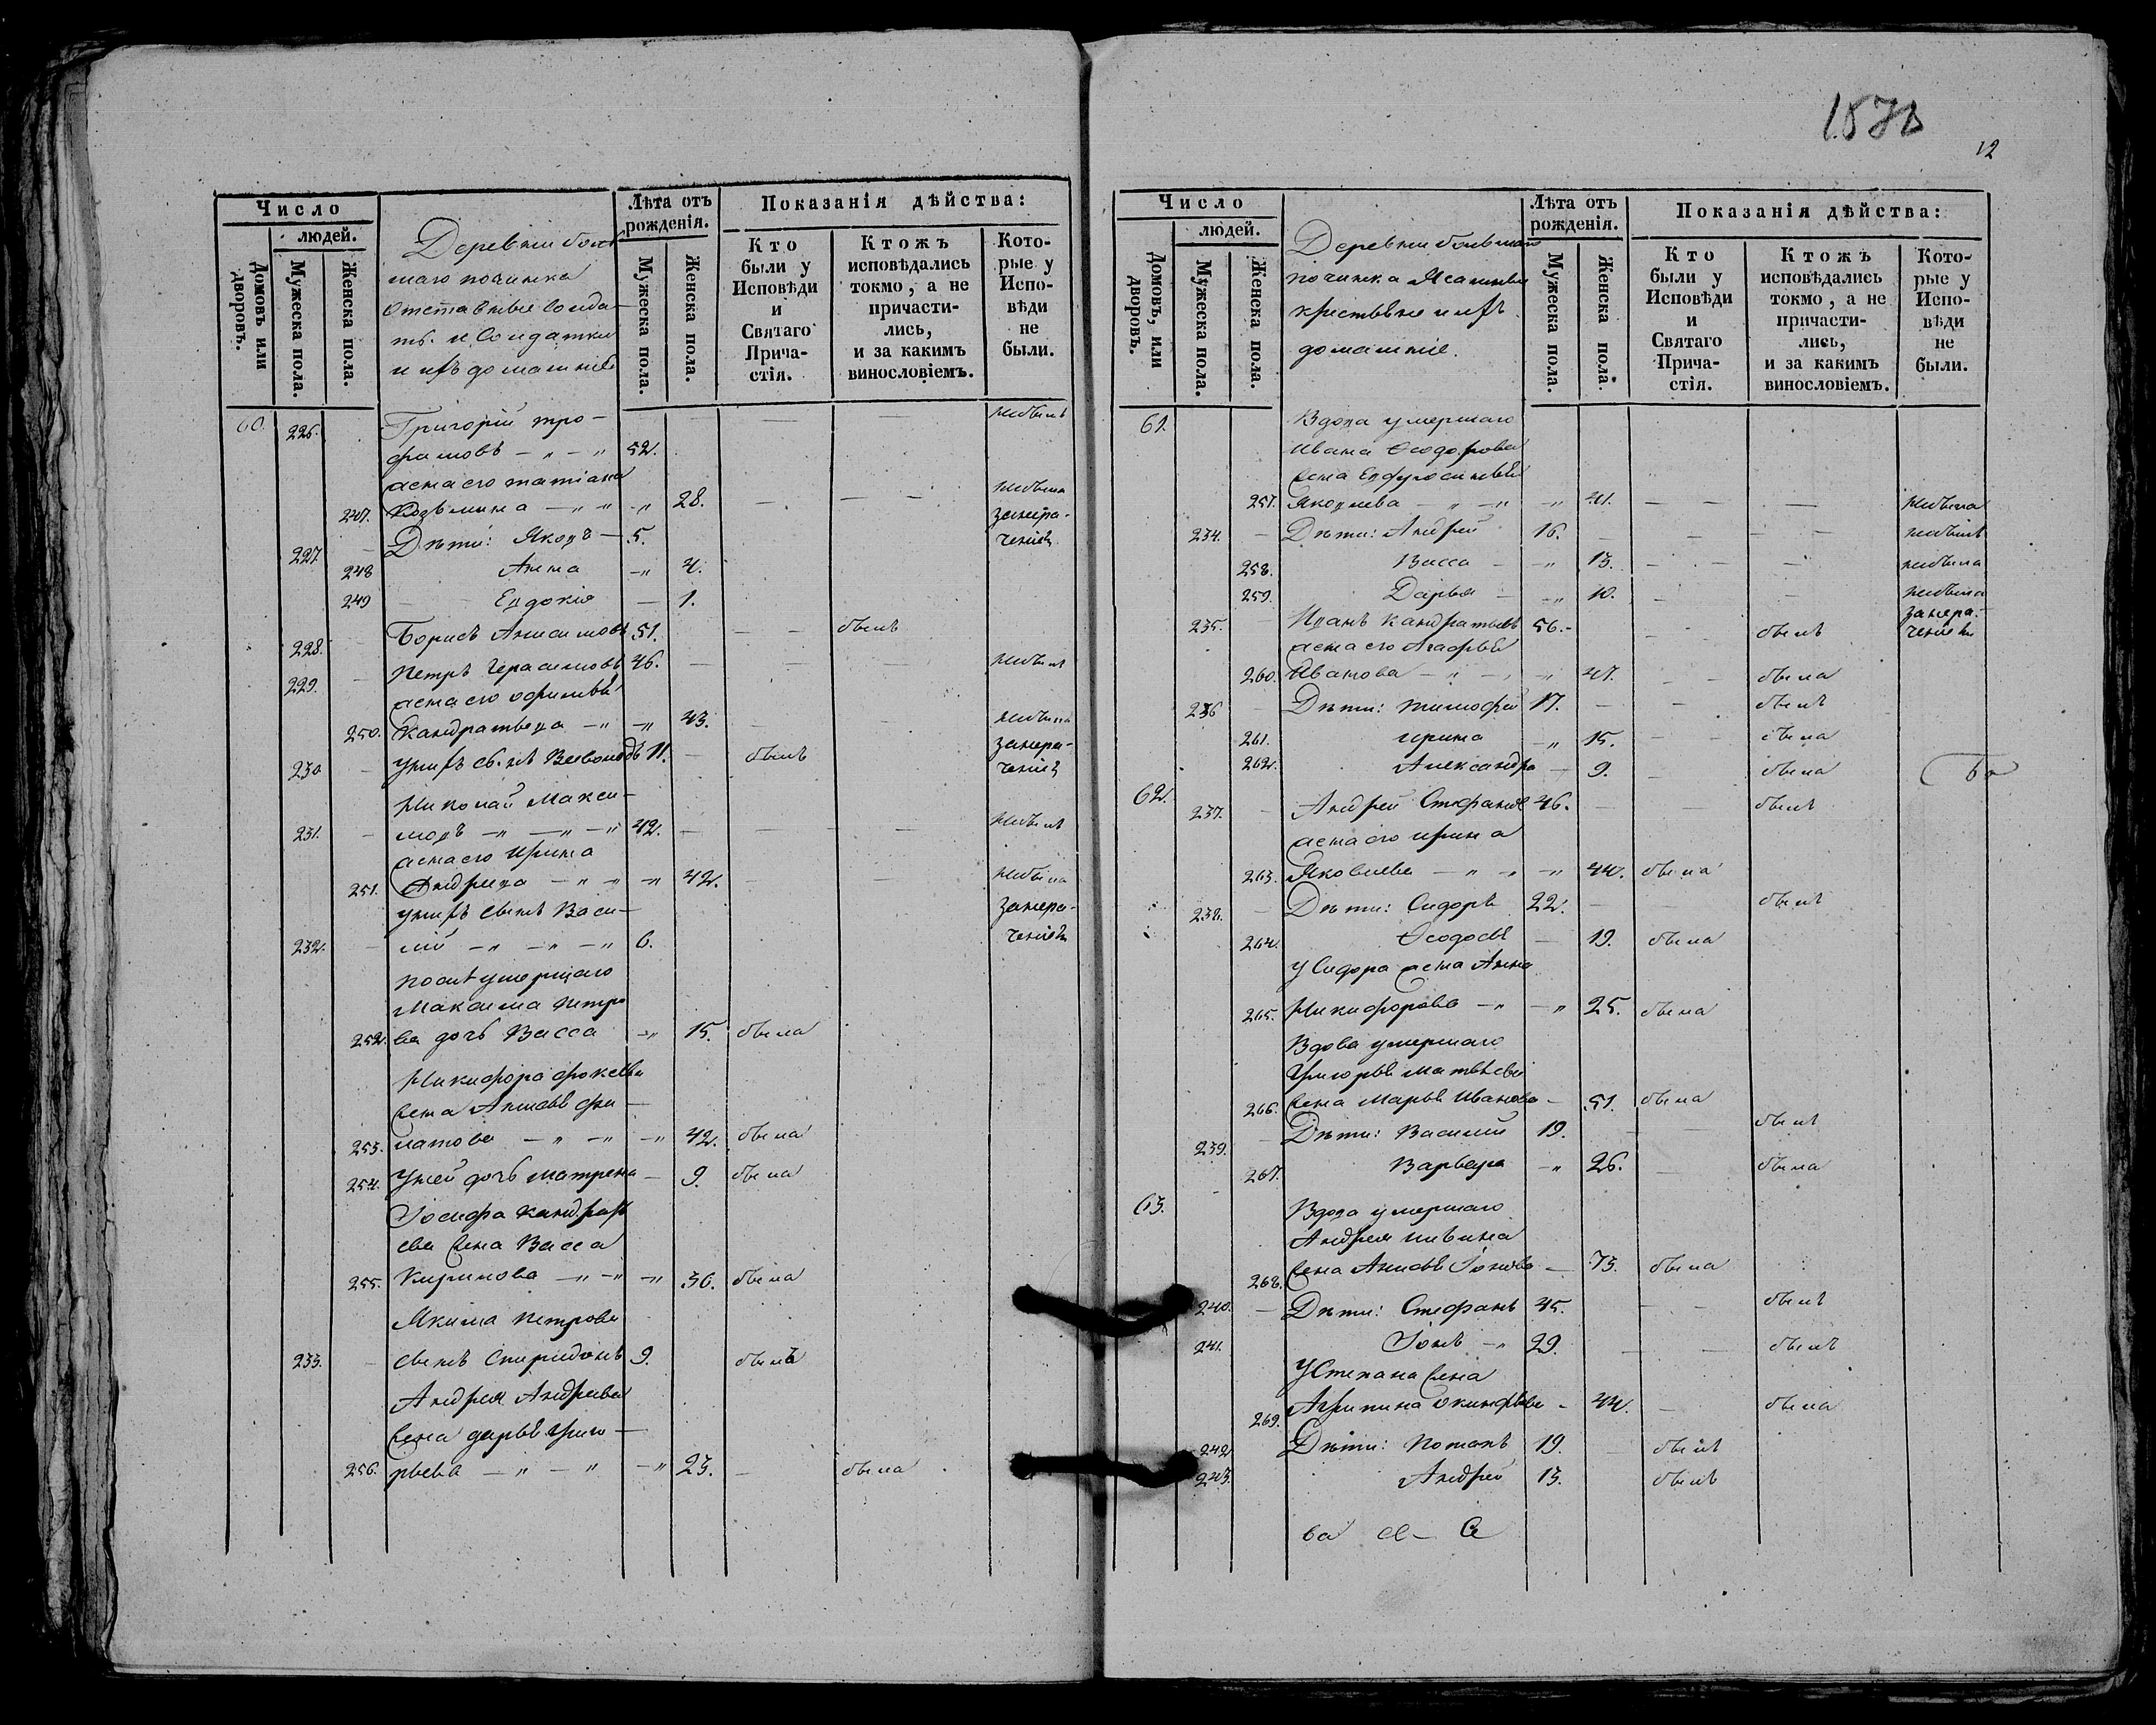 Число
людей.
Домовъ или дворовъ.
Мужеска пола.
Женска пола.
Деревни боль
шаго починка
Отставные солда-
ты и Солдатки
и ихъ домашніе
Лѣта отъ рожденія.
Мужеска пола.
Женска пола.
Показанія дѣйства:
Кто были у Исповѣди и Святаго Прича-стія.
Ктожъ исповѣдались токмо, а не причасти-лись, и за какимъ винословіемъ.
Кото-рые у Испо-вѣди не были.
60. 226. Григорій Тро- небылъ
фимовъ 52.
жена его татіана небыла
247. Козьмина 28. занера-
227 Дѣти: Яковъ 5. ченіемъ
248 Анна 4.
249 Евдокія 1.
228. Борисъ Анисимовъ 51. былъ
229. Петръ Герасимовъ 46. небылъ
жена его
250. Кандратьева 43. небыла
занера-
230 унихъ сынъ 11. былъ ченіемъ
Николай Макси-
231. мовъ 42. небылъ
жена его Ирина
251. Андреева 42. небыла
унихъ сынъ Васи- занера-
232. лій 6. ченіемъ
послѣ умершаго
Максима Петро
252. ва дочь Васса 15. была
Никифора фокеева
жена Анисья фи-
253. латова 42. была
254. Уней дочь Матрена 9. была
Іосифа Кандрать
ева жена Васса
255. Кирилова 36. была
Якима Петрова
233. сынъ Спиридонъ 9. былъ
Андрея Андреева
жена дарья Григо-
256. рьева 23. была
1873
12
Число
людей.
Домовъ, или дворовъ.
Мужеска пола.
Женска пола.
Деревни большаго
починка
крестьяне и ихъ
домашніе.
Лѣта отъ рожденія.
Мужеска пола.
Женска пола.
Показанія дѣйства:
Кто были у Исповѣди и Святаго Прича-стія.
Ктожъ исповѣдались токмо, а не причасти-лись, и за какимъ винословіемъ.
Кото-рые у Испо-вѣди не были.
61. Вдова умершаго
Ивана Ѳеодорова
жена Евфросинья
257. Яковлева 41. небыла
234. Дѣти: Андрей 16. небылъ
258. Васса 13. небыла
259. Дарья 10. небыла
занера-
235. Иванъ Кандратьевъ 56. былъ ченіемъ
жена его Агафья
260. Иванова 47. была
236 Дѣти: Тимофей 17. былъ
261. Ирина 15. была
262. Александра 9. была
62. 237. Андрей Стефановъ 46. былъ
жена его Ирина
263. Яковлева 44. была
238. Дѣти: Сидоръ 22. былъ
264. Ѳеодосья 19. была
У Сидора жена Анна
265. Никифорова 25. была
Вдова умершаго
Григорья Матвѣева
266. жена Марья Иванова 51. была
239. Дѣти: Василій 19. былъ
267. Варвара 26. была
63. Вдова умершаго
Андрея
268. жена Анисья Іонова 73. была
240. Дѣти: Стефанъ 45. былъ
241. Іонъ 29. былъ
У Степана жена
269. Агрипина 44. была
242 Дѣти: Потапъ 19. былъ
243. Андрей 13. былъ